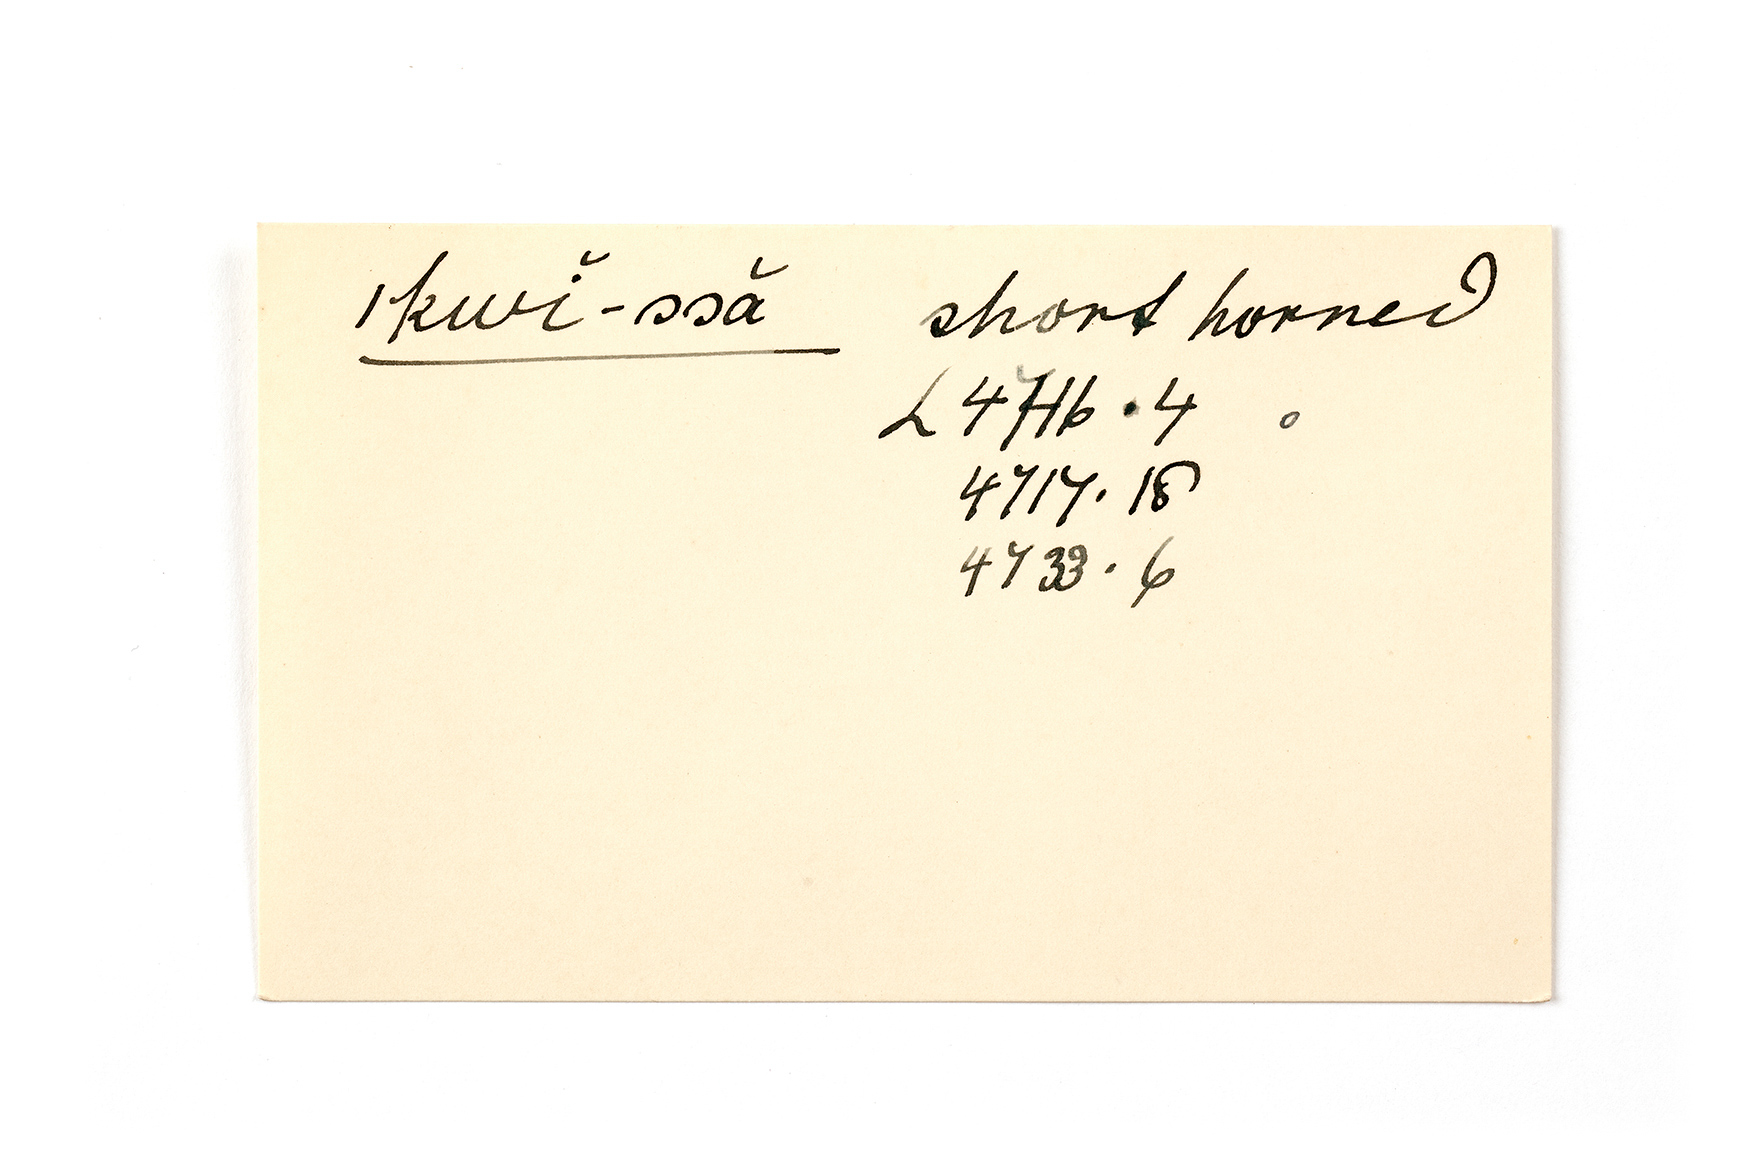 ıkwĭ-ssă short horned
L 4716 · 4 o
4717 · 18
4733 · 6